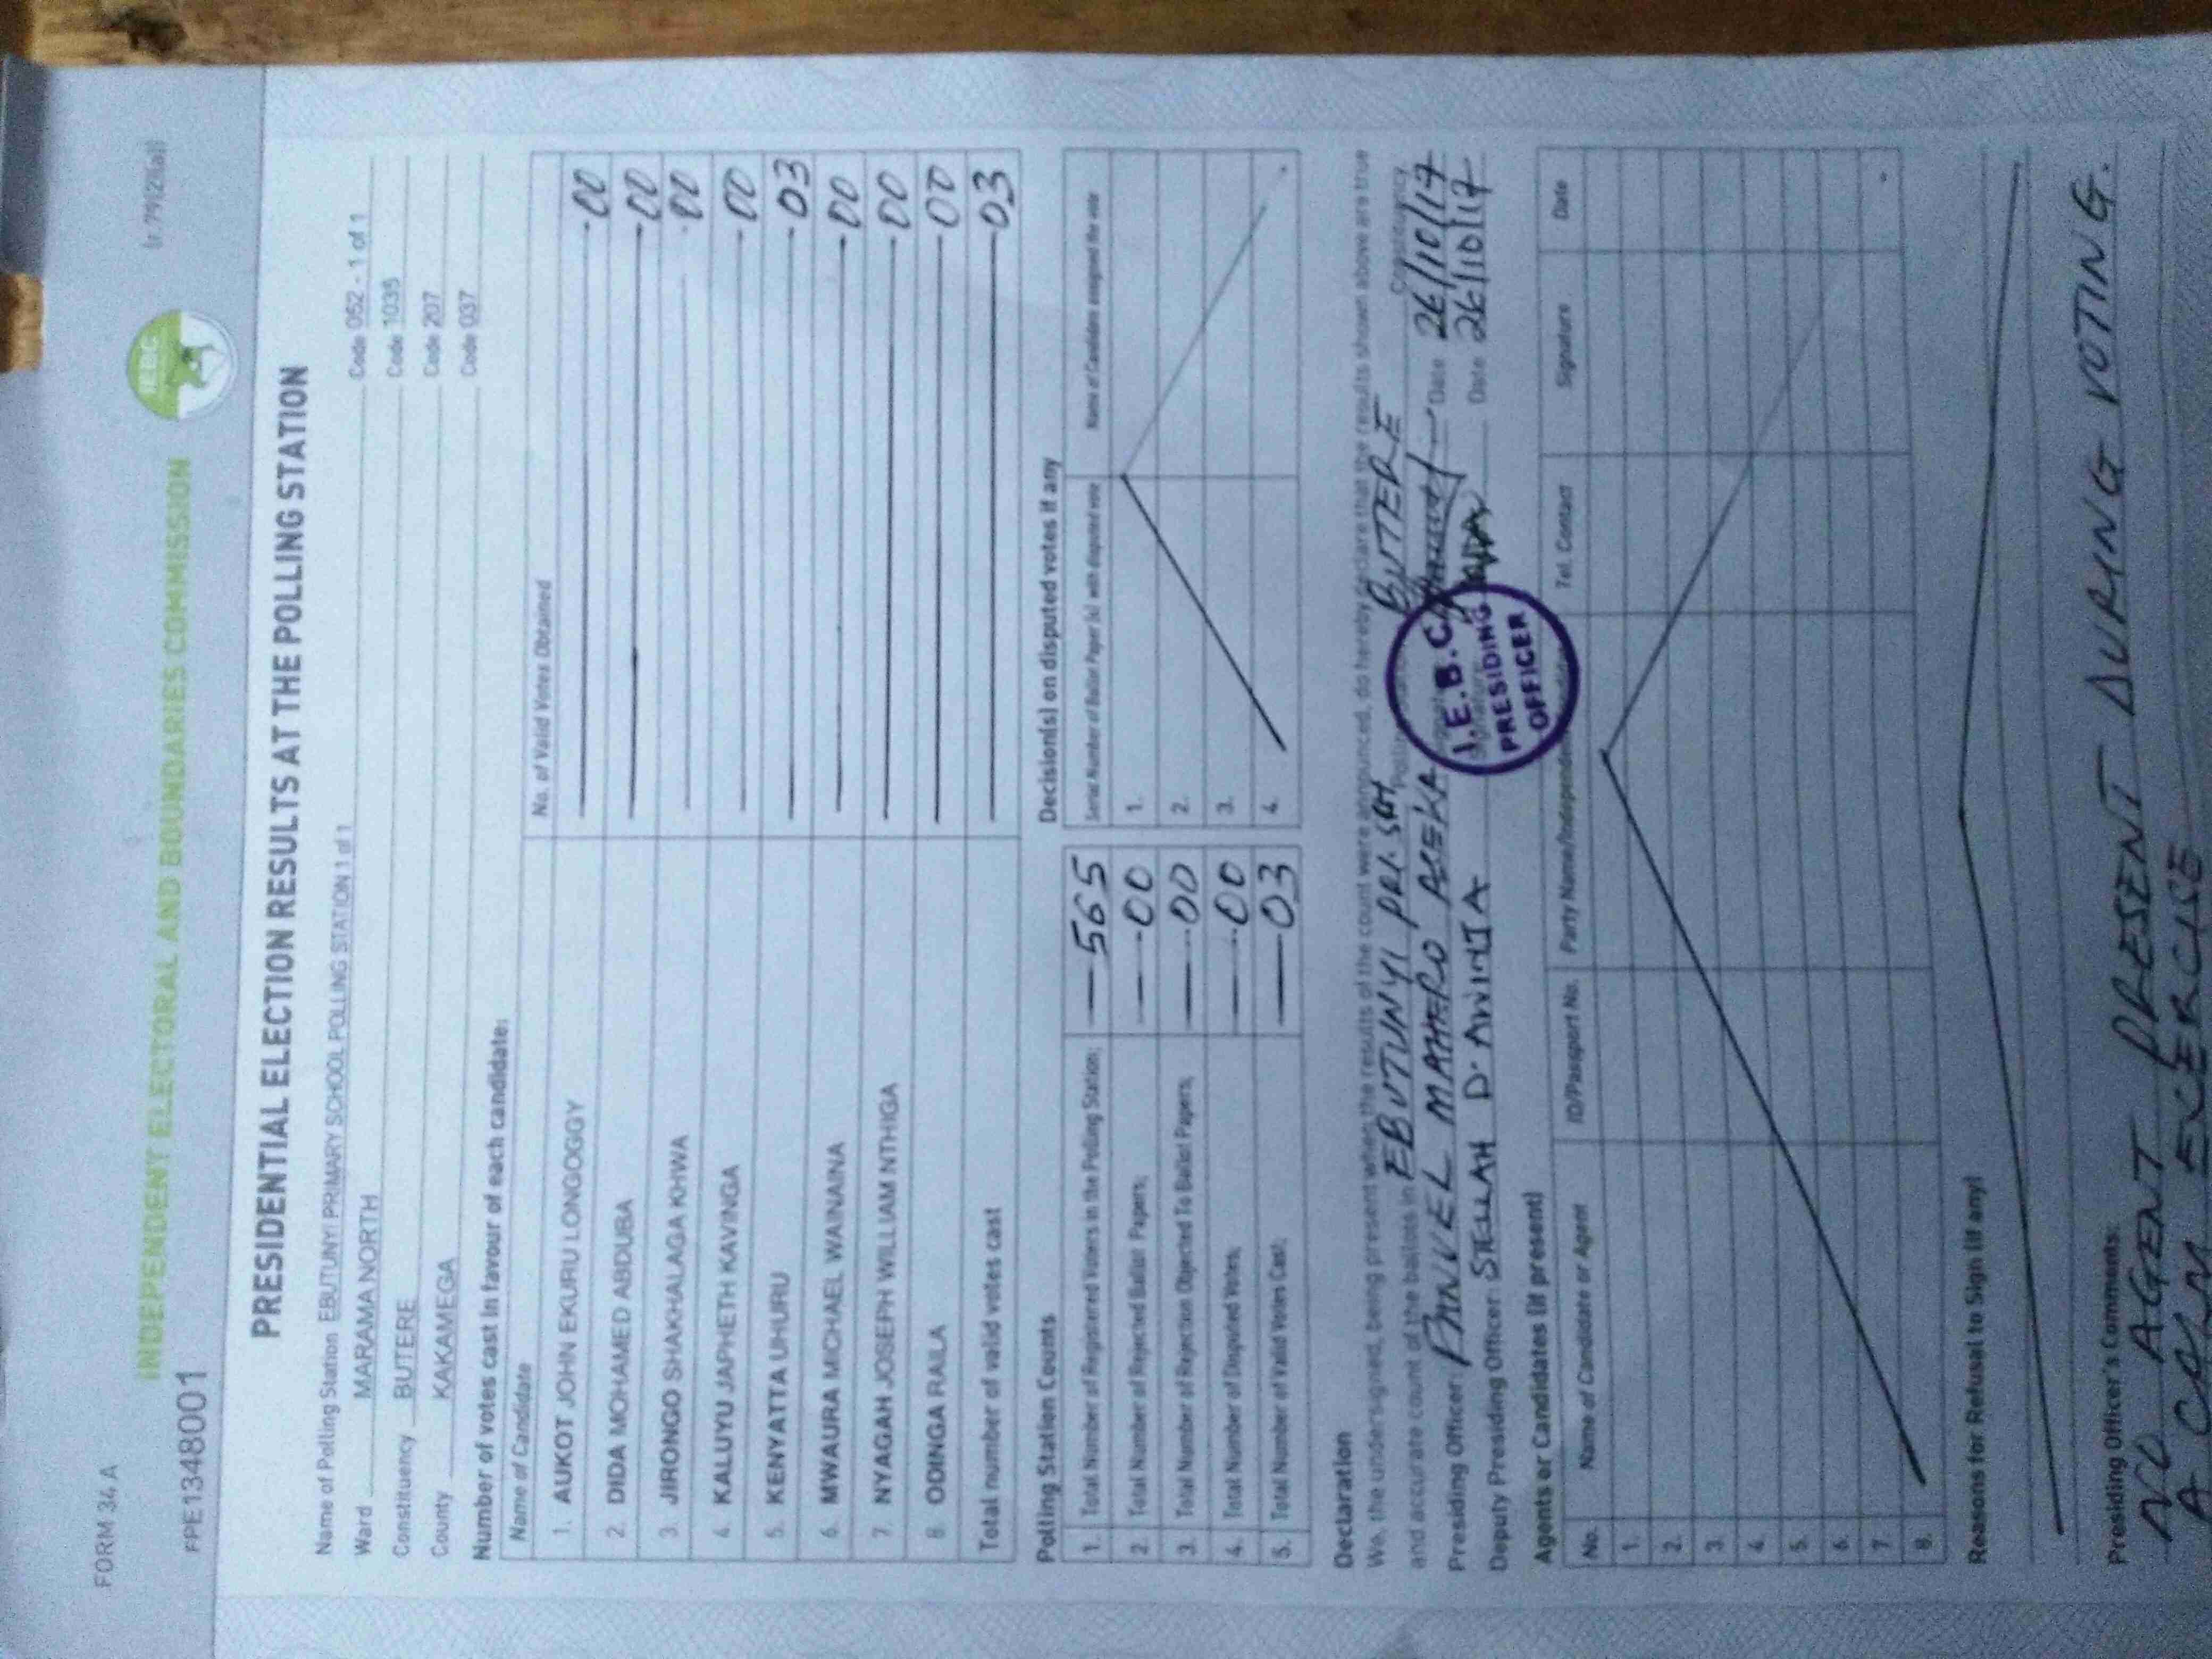 FORM 34 A
(r.79(2)(a))
INDEPENDENT ELECTORAL AND BOUNDARIES COMMISSION
IEBC
PPE1348001
PRESIDENTIAL ELECTION RESULTS AT THE POLLING STATION
Name of Polling Station EBUTUNYI PRIMARY SCHOOL POLLING STATION 1 of 1 Code 052 - 1 of 1
Ward MARAMA NORTH Code 1035
Constituency BUTERE Code 207
County KAKAMEGA Code 037
Number of votes cast in favour of each candidate:
Name of Candidate No. of Valid Votes Obtained
1. AUKOT JOHN EKURU LONGOGGY 00
2. DIDA MOHAMED ABDUBA 00
3. JIRONGO SHAKHALAGA KHWA 00
4. KALUYU JAPHETH KAVINGA 00
5. KENYATTA UHURU 03
6. MWAURA MICHAEL WAINAINA 00
7. NYAGAH JOSEPH WILLIAM NTHIGA 00
8. ODINGA RAILA 00
Total number of valid votes cast 03
Polling Station Counts
1. Total Number of Registered Voters in the Polling Station; 565
2. Total Number of Rejected Ballot Papers; 00
3. Total Number of Rejection Objected To Ballot Papers; 00
4. Total Number of Disputed Votes; 00
5. Total Number of Valid Votes Cast; 03
Decision(s) on disputed votes if any
Serial Number of Ballot Paper (s) with disputed vote Name of Candidate assigned the vote
1.
2.
3.
4.
Declaration
We, the undersigned, being present when the results of the count were announced, do hereby declare that the results shown above are true
and accurate count of the ballots in EBUTUNYI PRI SCH BUTERE Constituency
Presiding Officer: Date 26/10/17
Deputy Presiding Officer: STELLAH D. Date 26/10/17
I.E.B.C
PRESIDING
OFFICER
Agents or Candidates (if present)
No. Name of Candidate or Agent ID/Passport No. Party Name/Independent Tel. Contact Signature Date
1.
2.
3.
4.
5.
6.
7.
8.
Reasons for Refusal to Sign (if any)
Presiding Officer's Comments:
NO AGENT PRESENT DURING VOTING.
A CALM EXCERCISE